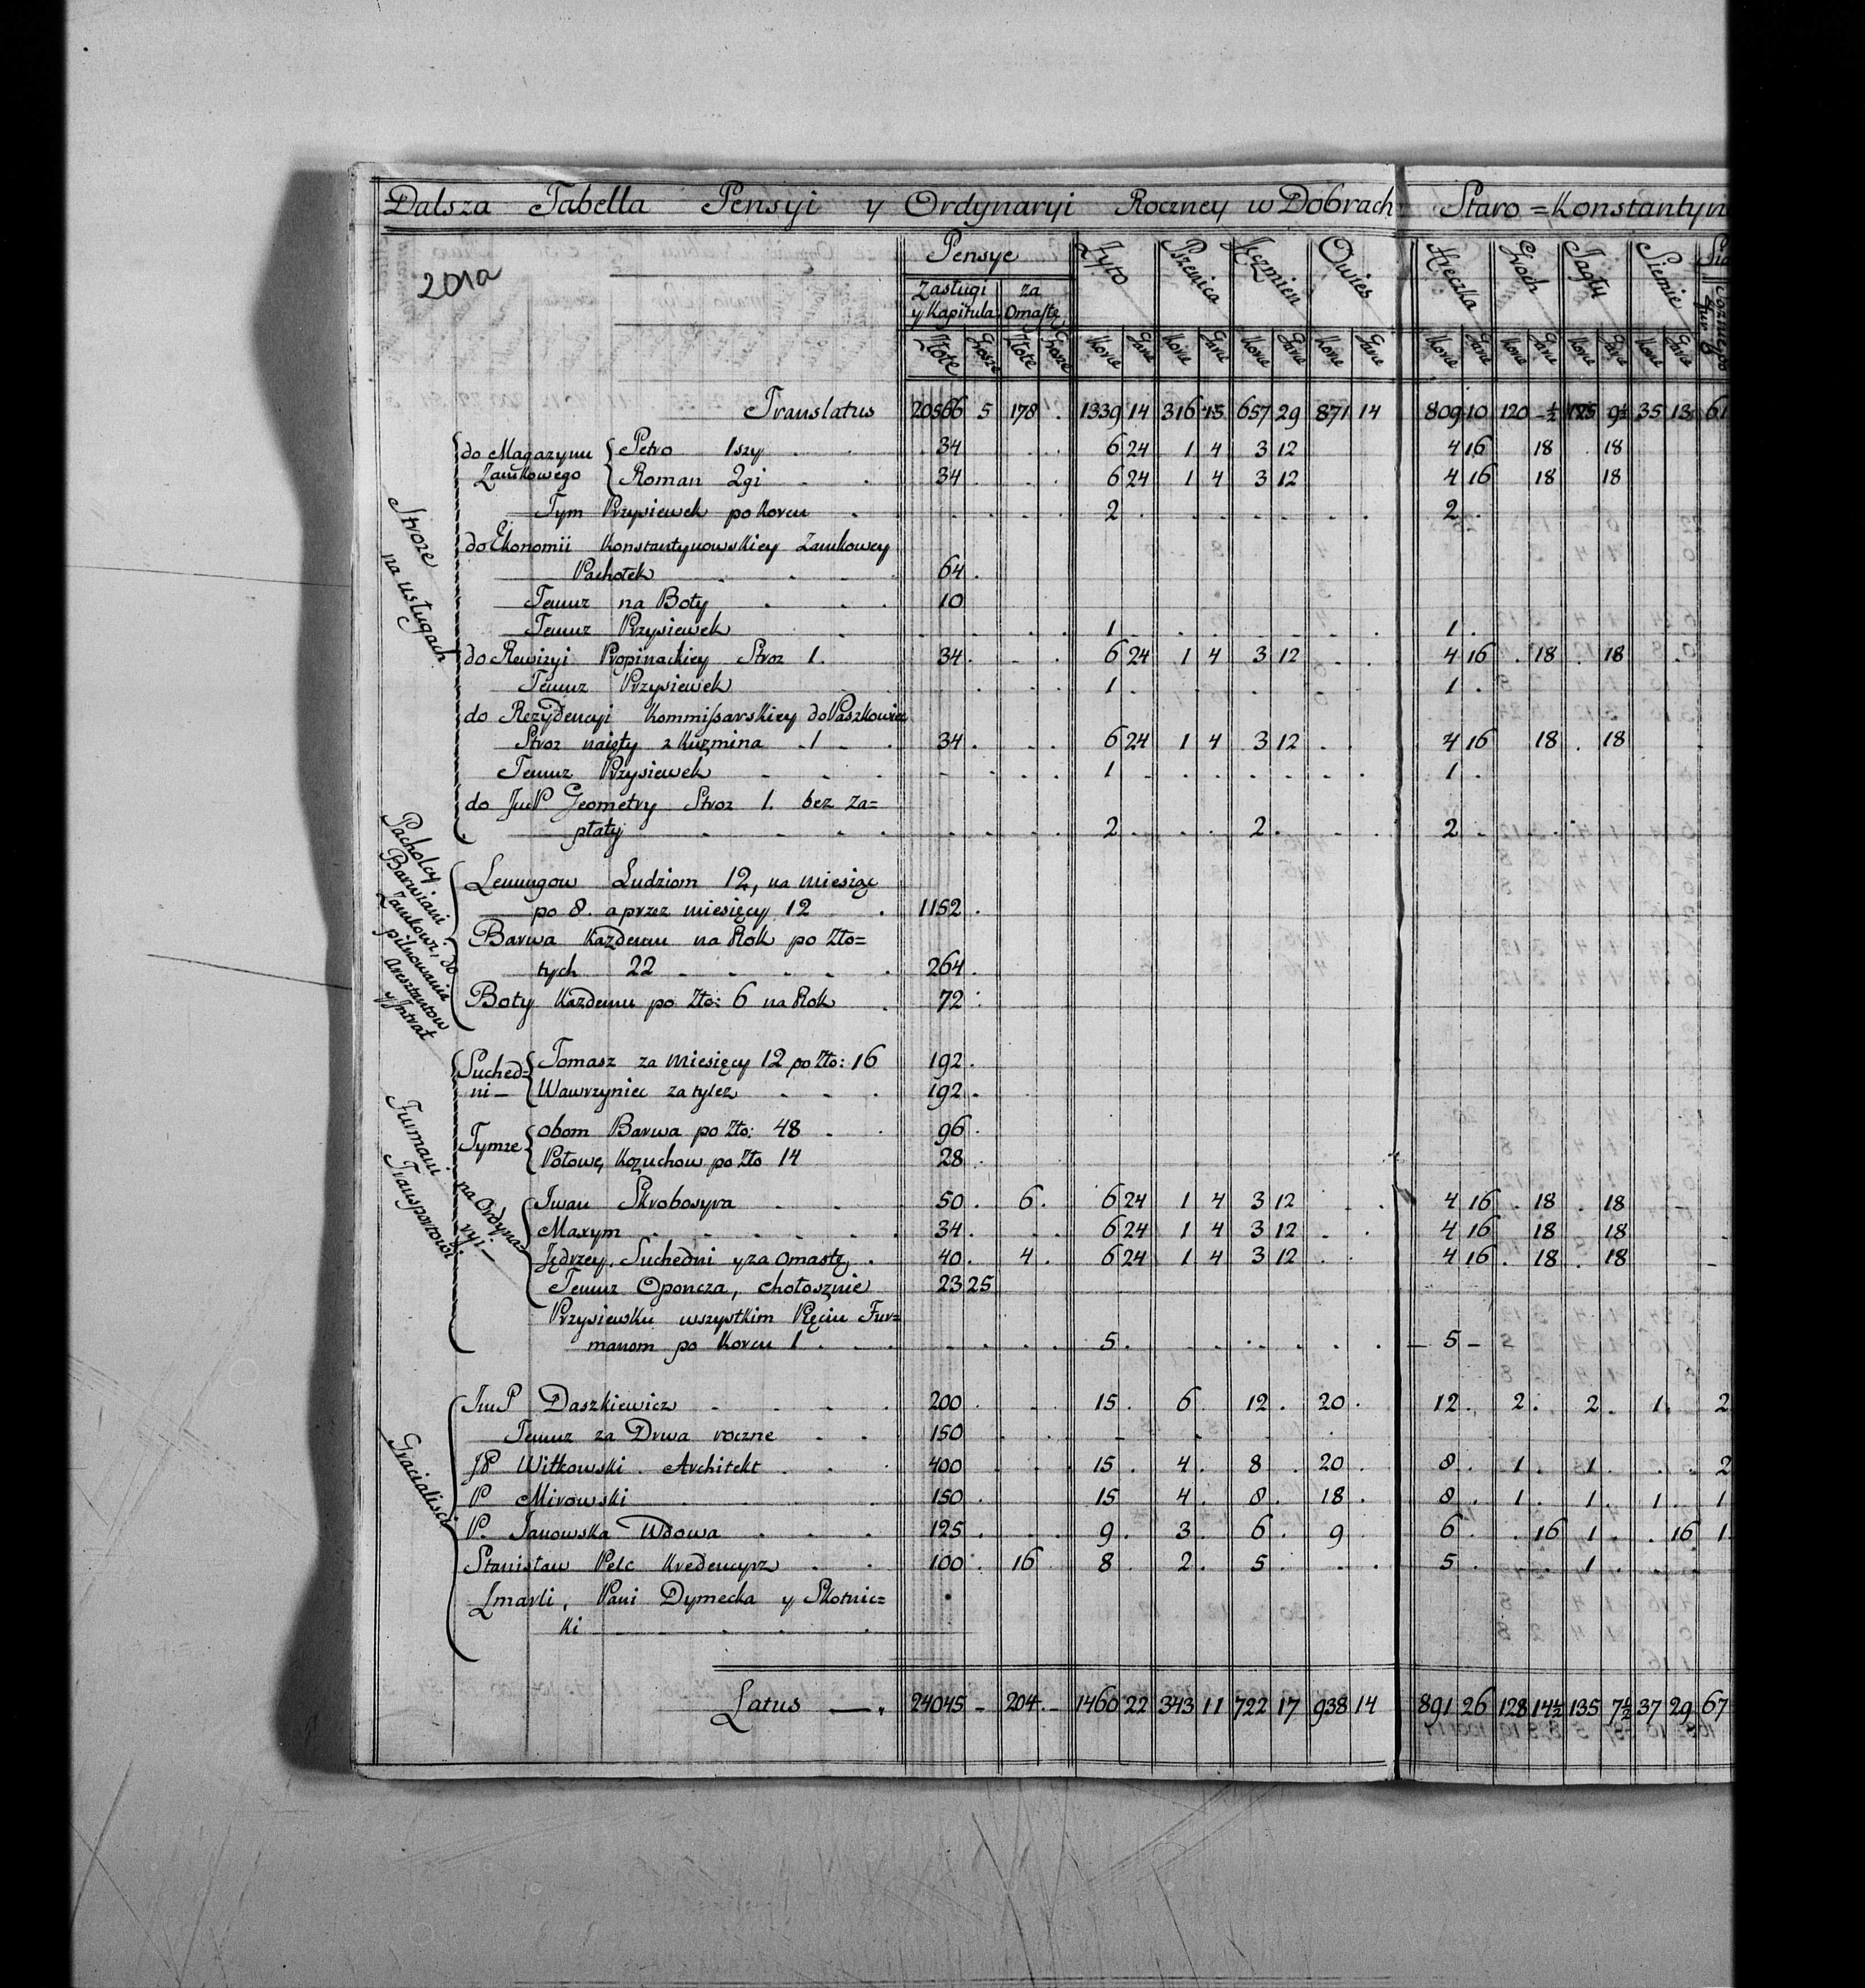 Dalsza Tabella Pensyi y Ordynaryi Roczney w Dobrach Staro=Konstantyn
201a
Pensye Żyto Pszenica Jęzmien Owies Hreczka Groch Jagły Siemie
Zasługi y Kapitula za Omastę
Złote Grosze Złote Grosze Korce Garce Korce Garce Korce Garce Korce Garce Korce Garce Korce Garce Korce Garce Korce Garce
Translatus 20566 5 178 . 1339 14 316 15 657 29 871 14 809 10 120 -½ 125 9½ 35 13 61
Stroze na usługach
do Magazynu Zamkowego
Petro 1szy 34 . 6 24 1 4 3 12 4 16 18 18
Roman 2gi 34 . 6 24 1 4 3 12 4 16 18 18
Tym Przysiewek po Korcu 2 . 2 .
do Ekonomii Konstantynowskiey Zamkowey
Pachołek 64 .
Temuz na Boty 10
Temuz Przysiewek 1 . 1 .
do Rewizyi Propinackiey Stroz 1. 34 . 6 24 1 4 3 12 4 16 18 18
Temuz Przysiewek 1 . 1 .
do Rezydencyi Kommissarskiey do Paszkowiec
Stroz naięty z Kuzmina 1 34 . 6 24 1 4 3 12 4 16 18 18
Temuz Przysiewek 1 1 .
do JmP Geometry Stroz 1. bez za=
płaty 2 . 2 . 2 .
Pacholcy Barwiani Zamkowi, do pilnowania aresztantow y Intrat
Leningow Ludziom 12, na miesiąc
po 8. a przez miesięcy 12 1152 .
Barwa Kazdemu na Rok po Zło=
tych 22 264 .
Boty Kazdemu po Zło: 6 na Rok 72 .
Furmani Transportowi
Suched=
ni —
Tomasz za Miesięcy 12 po Zło: 16 192 .
Wawrzyniec za tylez 192 .
Tymze
obom Barwa po Zło: 48 96 .
Połowę Kozuchow po Zło 14 28 .
na Ordyna=
ryi —
Iwan Skrobosyra 50 . 6 . 6 24 1 4 3 12 4 16 18 18
Maxym 34 . 6 24 1 4 3 12 4 16 18 18
Jędrzey, Suchedni y za Omastę 40 . 4 . 6 24 1 4 3 12 4 16 18 18
Temuz Oponcza, chołosznie 23 25
Przysiewku wszystkim Pięciu Fur=
manom po Korcu 1 5 . 5 -
Gracialisci
JmP Daszkiewicz 200 . 15 . 6 12 . 20 . 12 . 2 . 2 . 1 . 2
Temuz za Drwa roczne 150
JP Witkowski. Architekt 400 15 . 4 . 8 . 20 . 8 . 1 . 1 . 2
P Mirowski 150 . 15 4 . 8 . 18 . 8 . 1 . 1 . 1 1
P. Janowska Wdowa 125 . 9 . 3 . 6 . 9 6 . 16 1 . 16 1.
Stanisław Pelc Kredencyrz 100 . 16 8 . 2 . 5 . 5 . 1 .
Zmarli, Pani Dymecka y Skotnic=
ki
Latus — 24045 - 204 - 1460 22 343 11 722 17 938 14 891 26 128 14½ 135 7½ 37 29 67